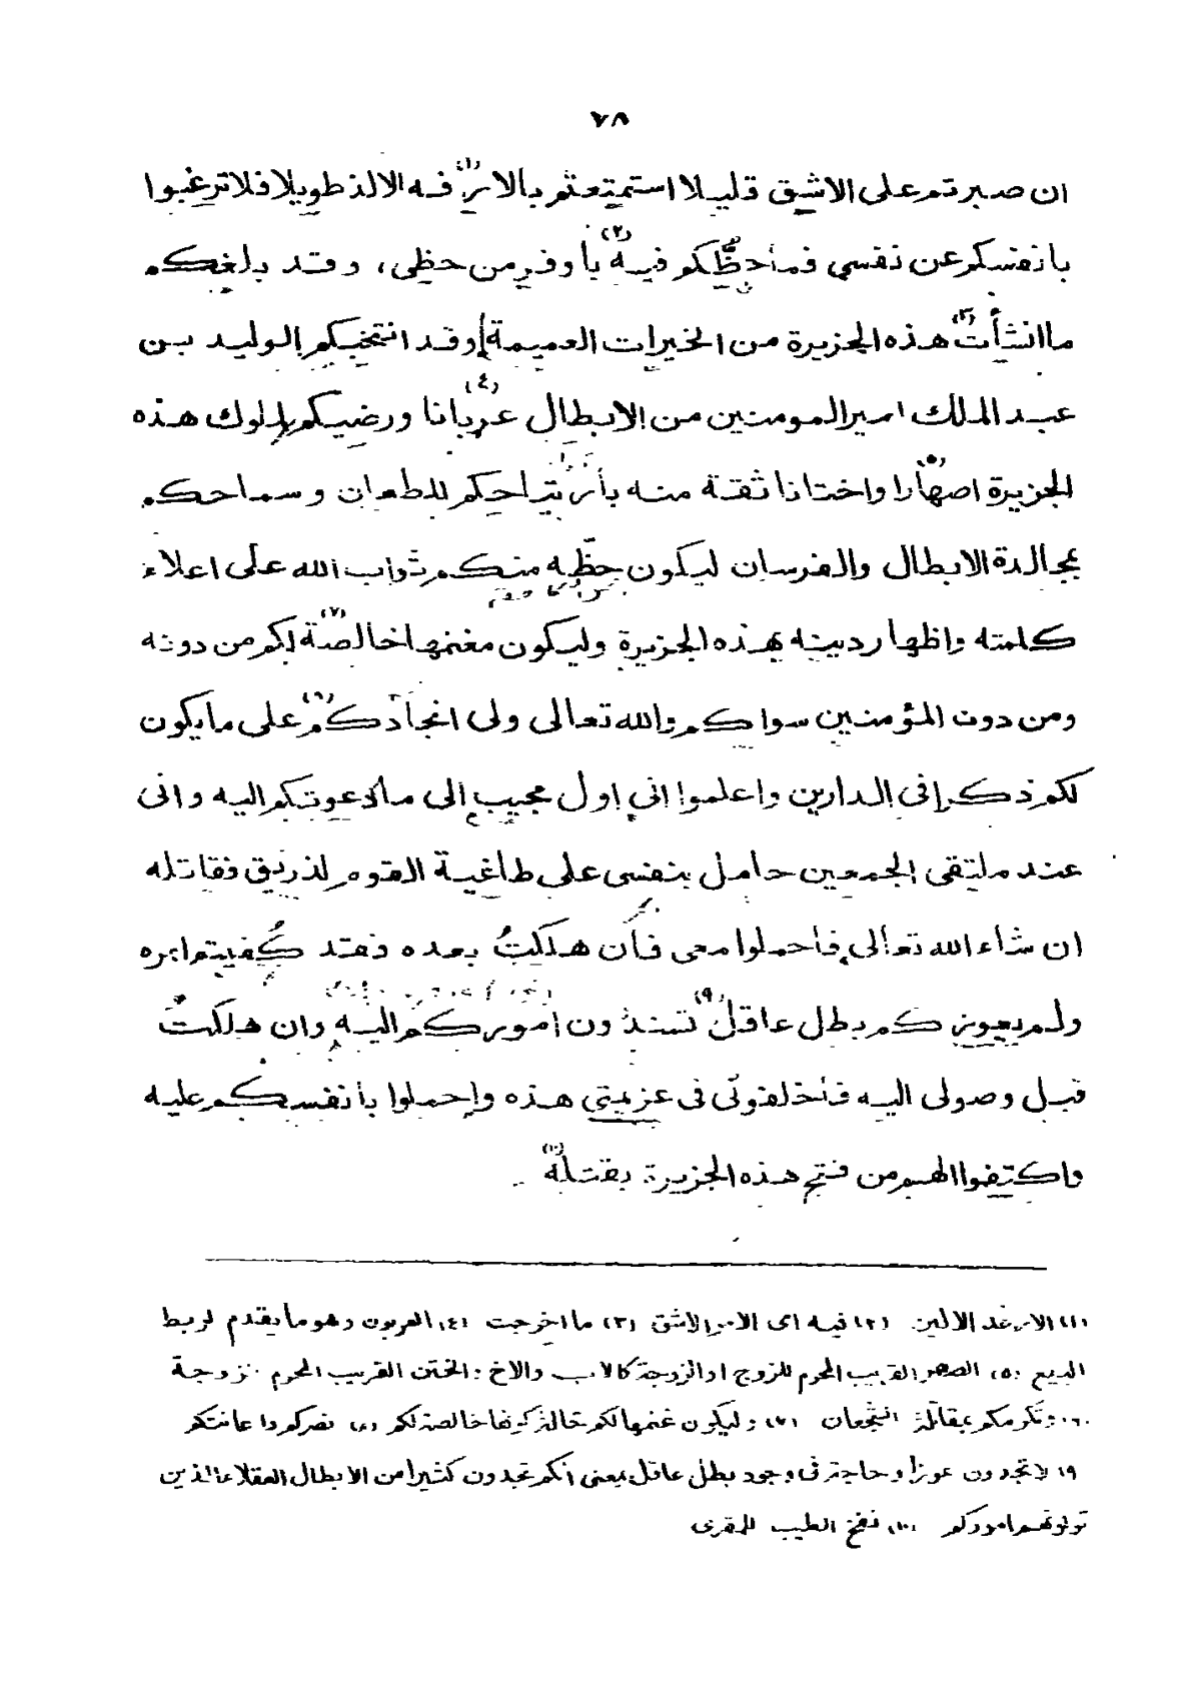 ٧٨
ان صبرتم على الاشق قليلا استمتعتم بالار(١)فه الالذ طويلا فلا ترغبوا
بانفسكم عن نفسي فما حظكم فيه(٢) بأوفر من حظى، وقد بلغكم
ما انشأت(٣) هذه الجزيرة من الخيرات العميمة وقد انتخبكم الوليد بن
عبد الملك امير المومنين من الابطال عربانا(٤) ورضيكم لملوك هذه
الجزيرة اصهارا(٥) واختانا ثقة منه بأرتياحكم للطعان وسماحكم
بمجالدة الابطال والفرسان ليكون حظه منكم ثواب الله على اعلاء
كلمته واظهار دينه بهذه الجزيرة وليكون مغنمها خالصة(٧) لكم من دونه
ومن دون المؤمنين سواكم والله تعالى ولى انجادكم(٨) على ما يكون
لكم ذكرا فى الدارين واعلموا انى اول مجيب الى ما دعوتكم اليه وانى
عند ملتقى الجمعين حامل بنفسى على طاغية القوم لذريق فقاتله
ان شاء الله تعالى فاحملوا معى فأن هلكتُ بعده فقد كُفيتم امره
ولم يعوزكم بطل عاقل(٩) تسندون اموركم اليه وان هلكتُ
قبل وصولى اليه فأخلفونى فى عزيمتى هذه واحملوا بأنفسكم عليه
واكتفوا الهم من فتح هذه الجزيرة بقتله(١٠)
(١) الارغد الالين (٢) فيه اى الامر الاشق (٣) ما اخرجت (٤) العربون وهو ما يقدم لربط
البيع (٥) الصهر القريب المحرم للزوج او الزوجة كالاب والاخ والختن القريب المحرم للزوجة
(٦) وتكرمكم بمقاتلة الشجعان (٧) وليكون غنمها لكم حالة كونها خالصة لكم (٨) نصركم واعانتكم
(٩) لا تجدون عوزا وحاجة فى وجود بطل عاقل بمعنى انكم تجدون كثيرا من الابطال العقلاء الذين
تولونهم اموركم (١٠) نفح الطيب للمقرى